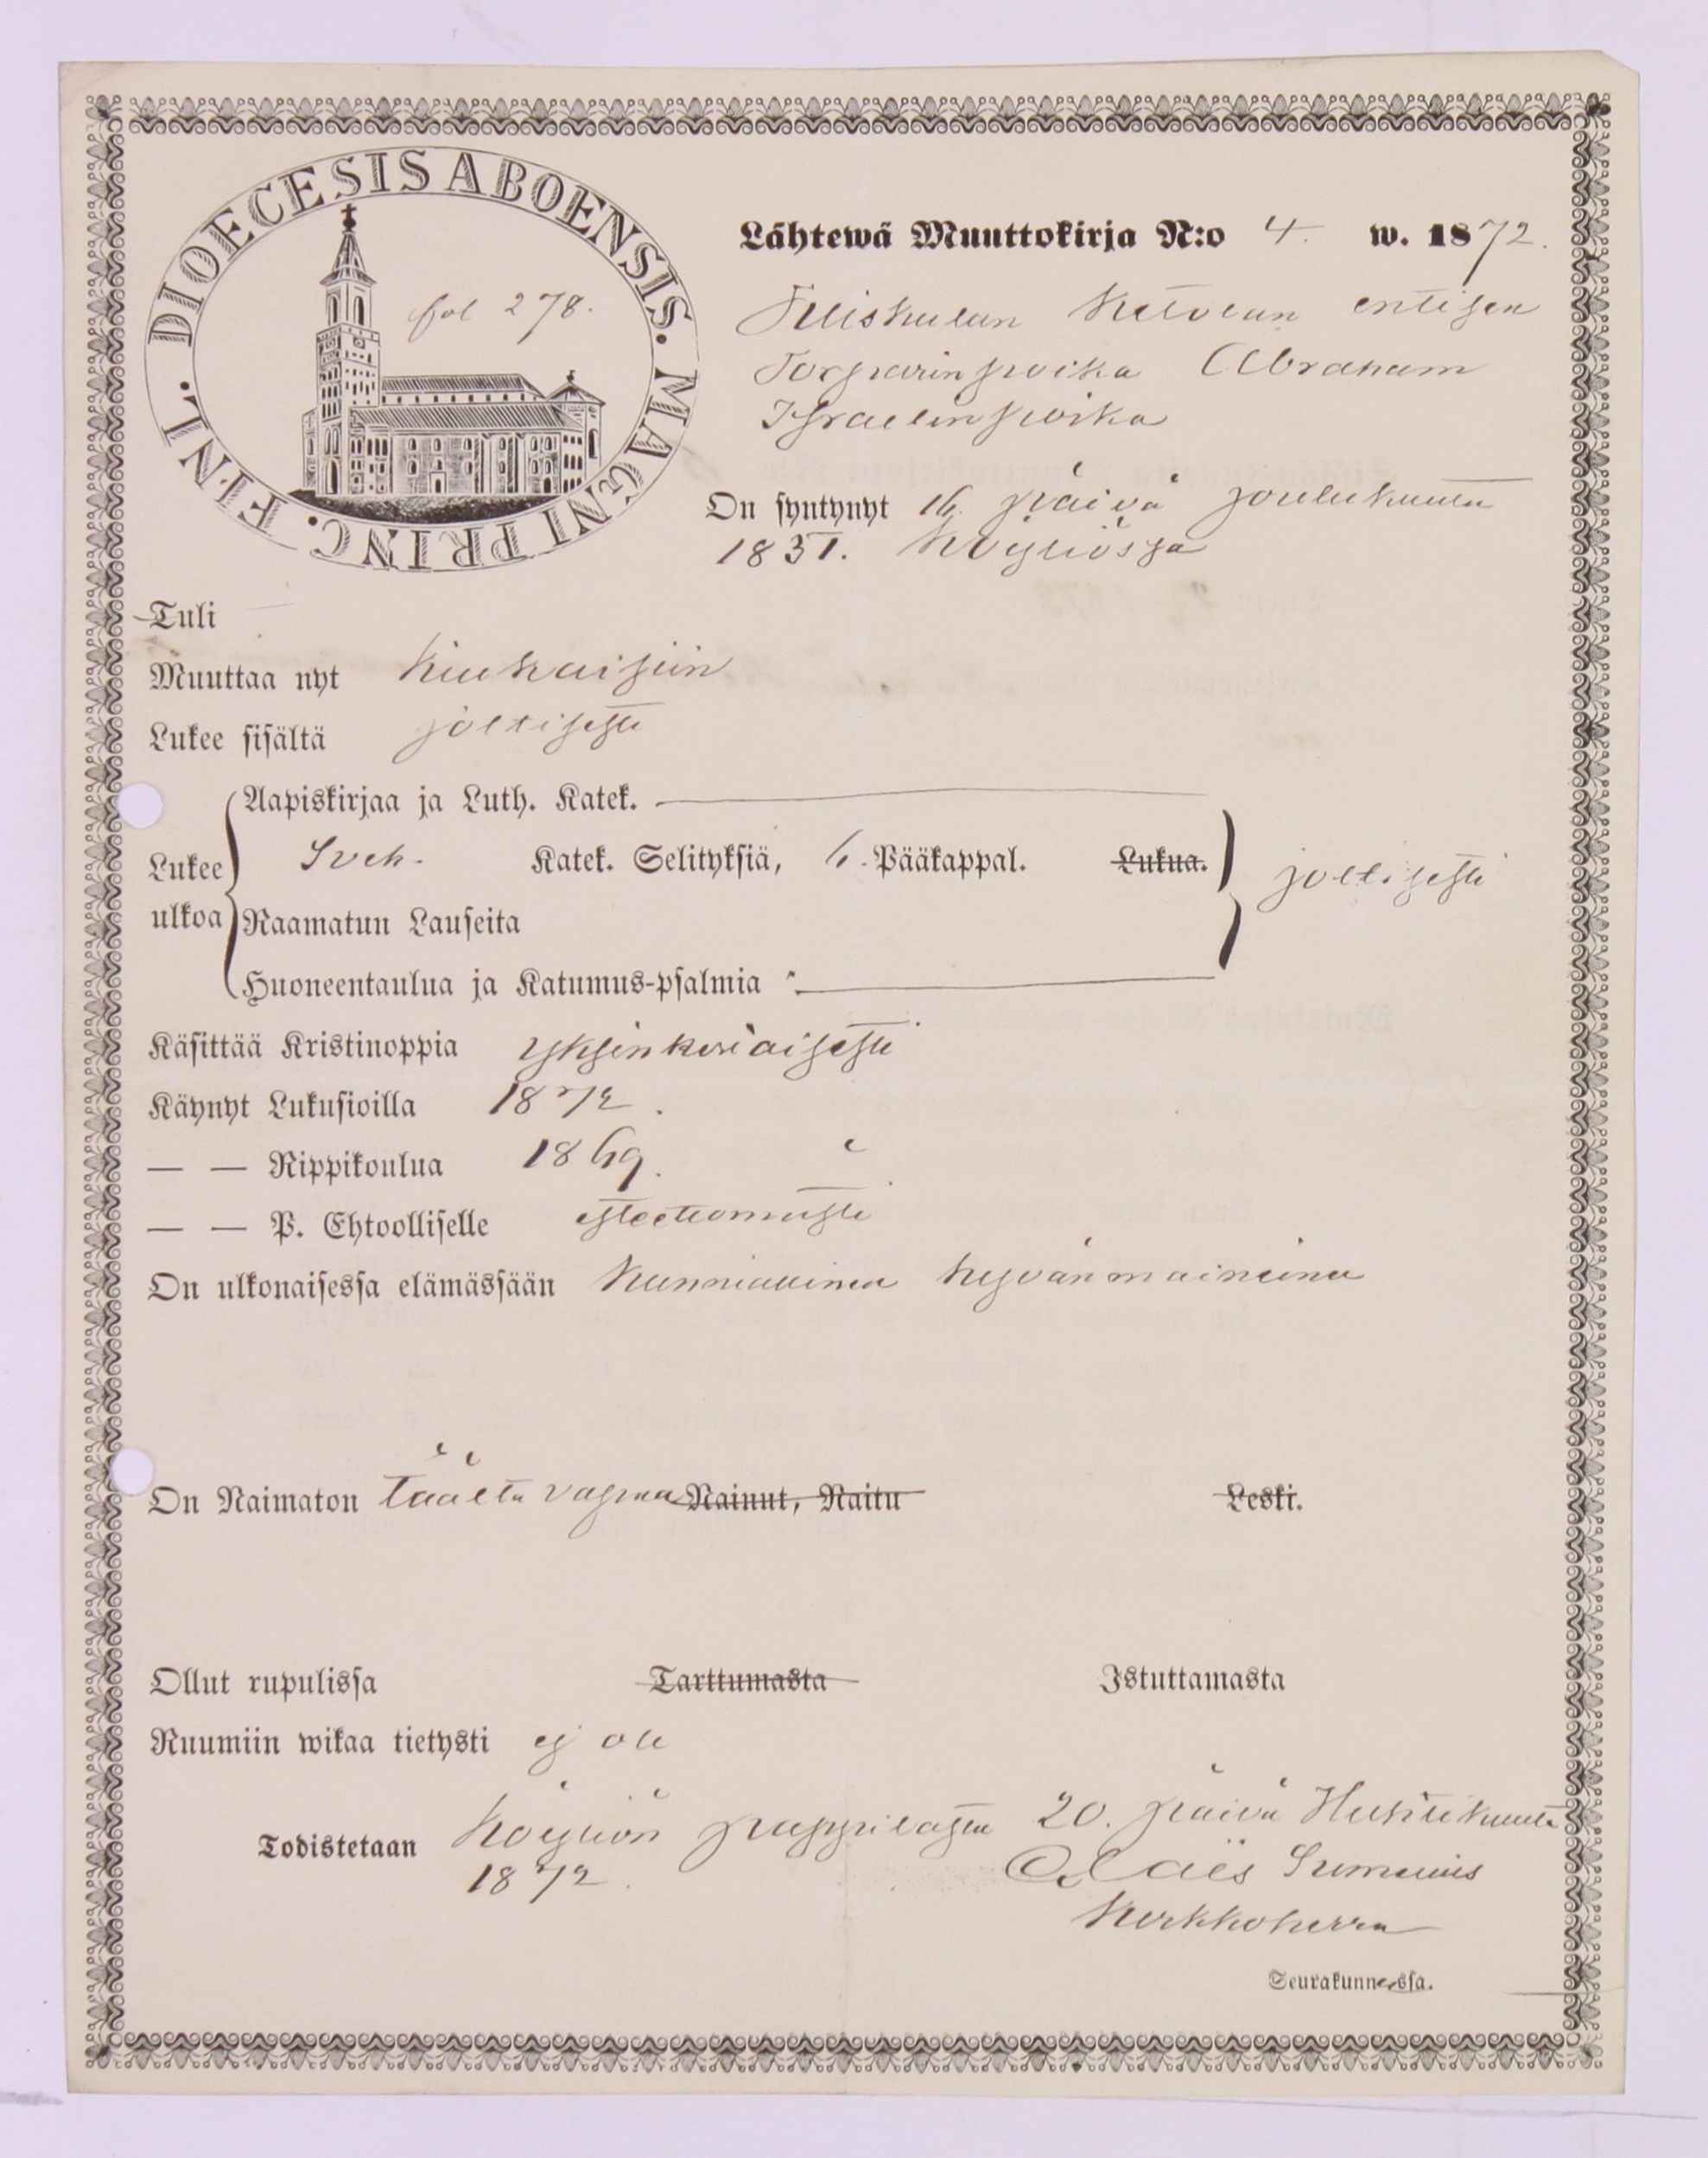 DIOECESIS ABOENSIS. MAGNI PRINC. FINL.
fol 278.
Lähtewä Muuttokirja N:o 4. w. 1872.
Ketolan entisen
Torparin poika Abraham
Israelin poika
On syntynyt 16 päivä joulukuuta
1851. Köyliössä
Tuli
Muuttaa nyt Kiukaisiin
Lukee sisältä joltisesti
Aapiskirjaa ja Luth. Katek.
Lukee ulkoa Sveb. Katek. Selityksiä, 6. Pääkappal. Lukua. joltisesti
Raamatun Lauseita
Huoneentaulua ja Katumus-psalmia
Käsittää Kristinoppia yksinkertaisesti
Käynyt Lukusioilla 1872.
— — Rippikoulua 1869.
— — P. Ehtoolliselle esteettömästi
On ulkonaisessa elämässään kunniallinen hyvänmaineinen
On Naimaton täältä vapaa Nainut, Naitu Leski.
Ollut rupulissa Tarttumasta Istuttamasta
Ruumiin wikaa tietysti ej ole
Todistetaan Köyliön pappilassa 20. päivä Huhtikuuta
1872. Claës
Kirkkoherra
Seurakunnassa.